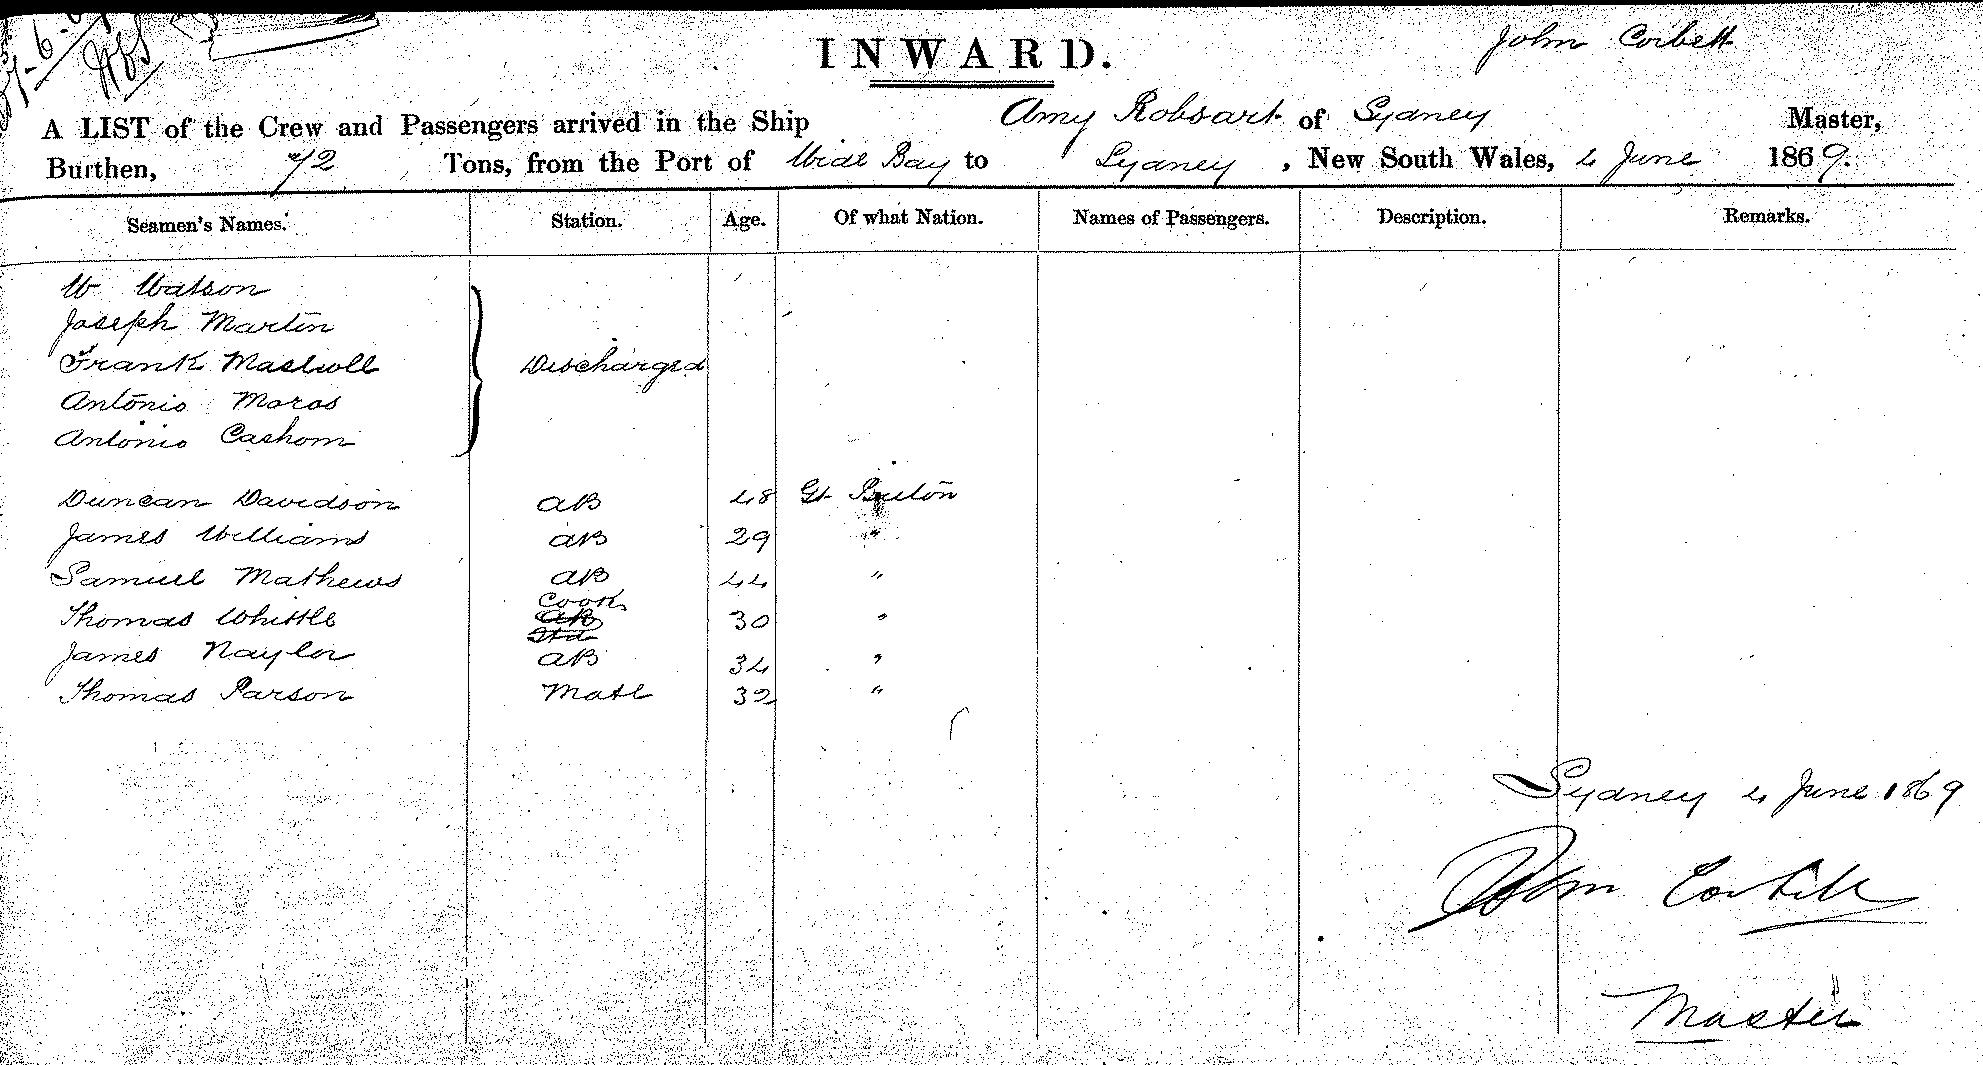 INWARD.
John Corbett
A LIST of the Crew and Passengers arrived in the Ship Amy Robsart of Sydney Master,
Burthen, 72 Tons, from the Port of Wide Bay to Sydney, New South Wales, 4 June 1869.
Seamen's Names. Station. Age. Of what Nation. Names of Passengers. Description. Remarks.
W Watson
Joseph Martin
Frank Discharged
Antonio Moros
Antonio Cashom
Duncan Davidson AB 48 Gt Briton
James Williams AB 29 "
Samuel Mathews AB 44 "
Cook
Thomas Whittle AB 30 "
Std
James Naylor AB 34 "
Thomas Parson Mate 32 "
Sydney 4 June 1869
John Corbett
Master